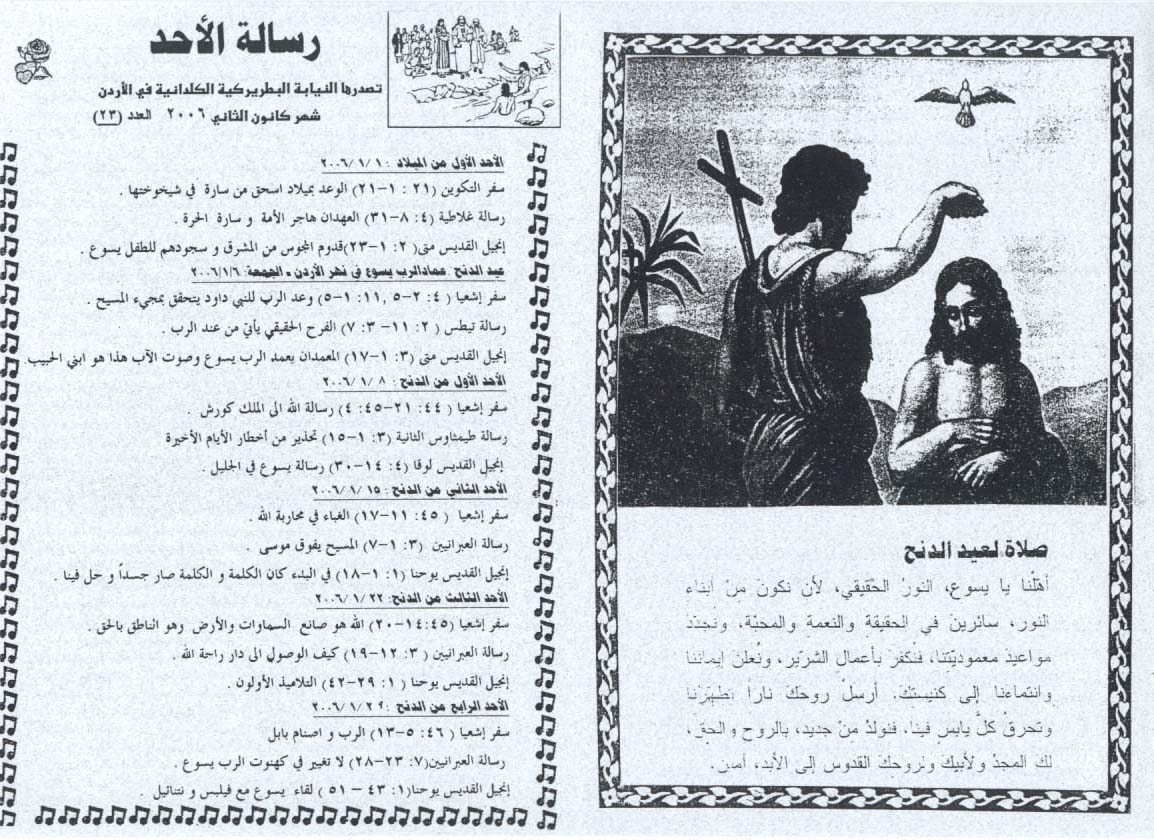 رسالة الأحد
تصدرها النيابة البطريركية الكلدانية في الأردن
شهر كانون الثاني ٢٠٠٦ العدد (٢٣)
الأحد الأول من الميلاد : ٢٠٠٦/١/١
سفر التكوين (٢١ : ١-٢١) الوعد بميلاد اسحق من سارة في شيخوختها .
رسالة غلاطية (٤: ٨-٣١) العهدان هاجر الأمة و سارة الحرة .
إنجيل القديس متى( ٢: ١-٢٣)قدوم المجوس من المشرق و سجودهم للطفل يسوع .
عيد الدنح عمادالرب يسوع في نهر الأردن - الجمعة: ٢٠٠٦/١/٦
سفر إشعيا ( ٤: ٢-٥ ,١١: ١-٥) وعد الرب للنبي داود يتحقق بمجيء المسيح .
رسالة تيطس ( ٢: ١١- ٣: ٧) الفرح الحقيقي يأتي من عند الرب .
إنجيل القديس متى (٣: ١-١٧) المعمدان يعمد الرب يسوع وصوت الآب هذا هو ابني الحبيب.
الأحد الأول من الدنح : ٨ /٢٠٠٦/١
سفر إشعيا ( ٤٤: ٢١-٤٥: ٤) رسالة الله الى الملك كورش .
رسالة طيمثاوس الثانية (٣: ١-١٥) تحذير من أخطار الأيام الأخيرة
إنجيل القديس لوقا (٤: ١٤-٣٠) رسالة يسوع في الجليل .
الأحد الثاني من الدنح : ١٥ /٢٠٠٦/١
سفر إشعيا ( ٤٥: ١١-١٧) الغباء في محاربة الله .
رسالة العبرانيين (٣: ١-٧) المسيح يفوق موسى .
إنجيل القديس يوحنا (١: ١-١٨) في البدء كان الكلمة و الكلمة صار جسداً و حل فينا .
الأحد الثالث من الدنح: ٢٢ /٢٠٠٦/١
سفر إشعيا (٤٥:١٤-٢٠) الله هو صانع السماوات والأرض وهو الناطق بالحق .
رسالة العبرانيين ( ٣: ١٢-١٩) كيف الوصول الى دار راحة الله .
إنجيل القديس يوحنا ( ١: ٢٩-٤٢) التلاميذ الأولون .
الأحد الرابع من الدنح : ٢٩ /٢٠٠٦/١
سفر إشعيا ( ٤٦: ٥-١٣) الرب و اصنام بابل
رسالة العبرانيين(٧: ٢٣-٢٨) لا تغيير في كهنوت الرب يسوع .
إنجيل القديس يوحنا(١: ٤٣ – ٥١ ) لقاء يسوع مع فيلبس و نتنائيل .
صلاة لعيد الدنح
أهّلنا يا يسوع، النورُ الحقيقي، لأن نكون منْ أبناء
النور، سائرين في الحقيقة والنعمة والمحبّة، ونجدّد
مواعيدَ معموديّتنا، فنكفرُ بأعمال الشرّير، ونعلنُ إيماننا
وانتماءَنا إلى كنيستك. أرسلْ روحك ناراً تطهّرنا
وتحرقُ كلَّ يابس فينا، فنولدُ منْ جديد، بالروح والحقّ،
لك المجدُ ولأبيكَ ولروحكَ القدوس إلى الأبد، أمين.